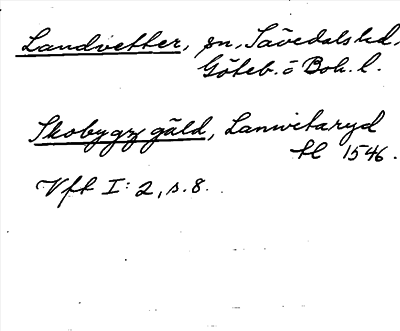 Landvetter, sn, Sävedals hd,
Göteb. o Boh. l.
Skobygz gäld, Lanwetaryd
hl 1546.
Vfk I: 2, s. 8.